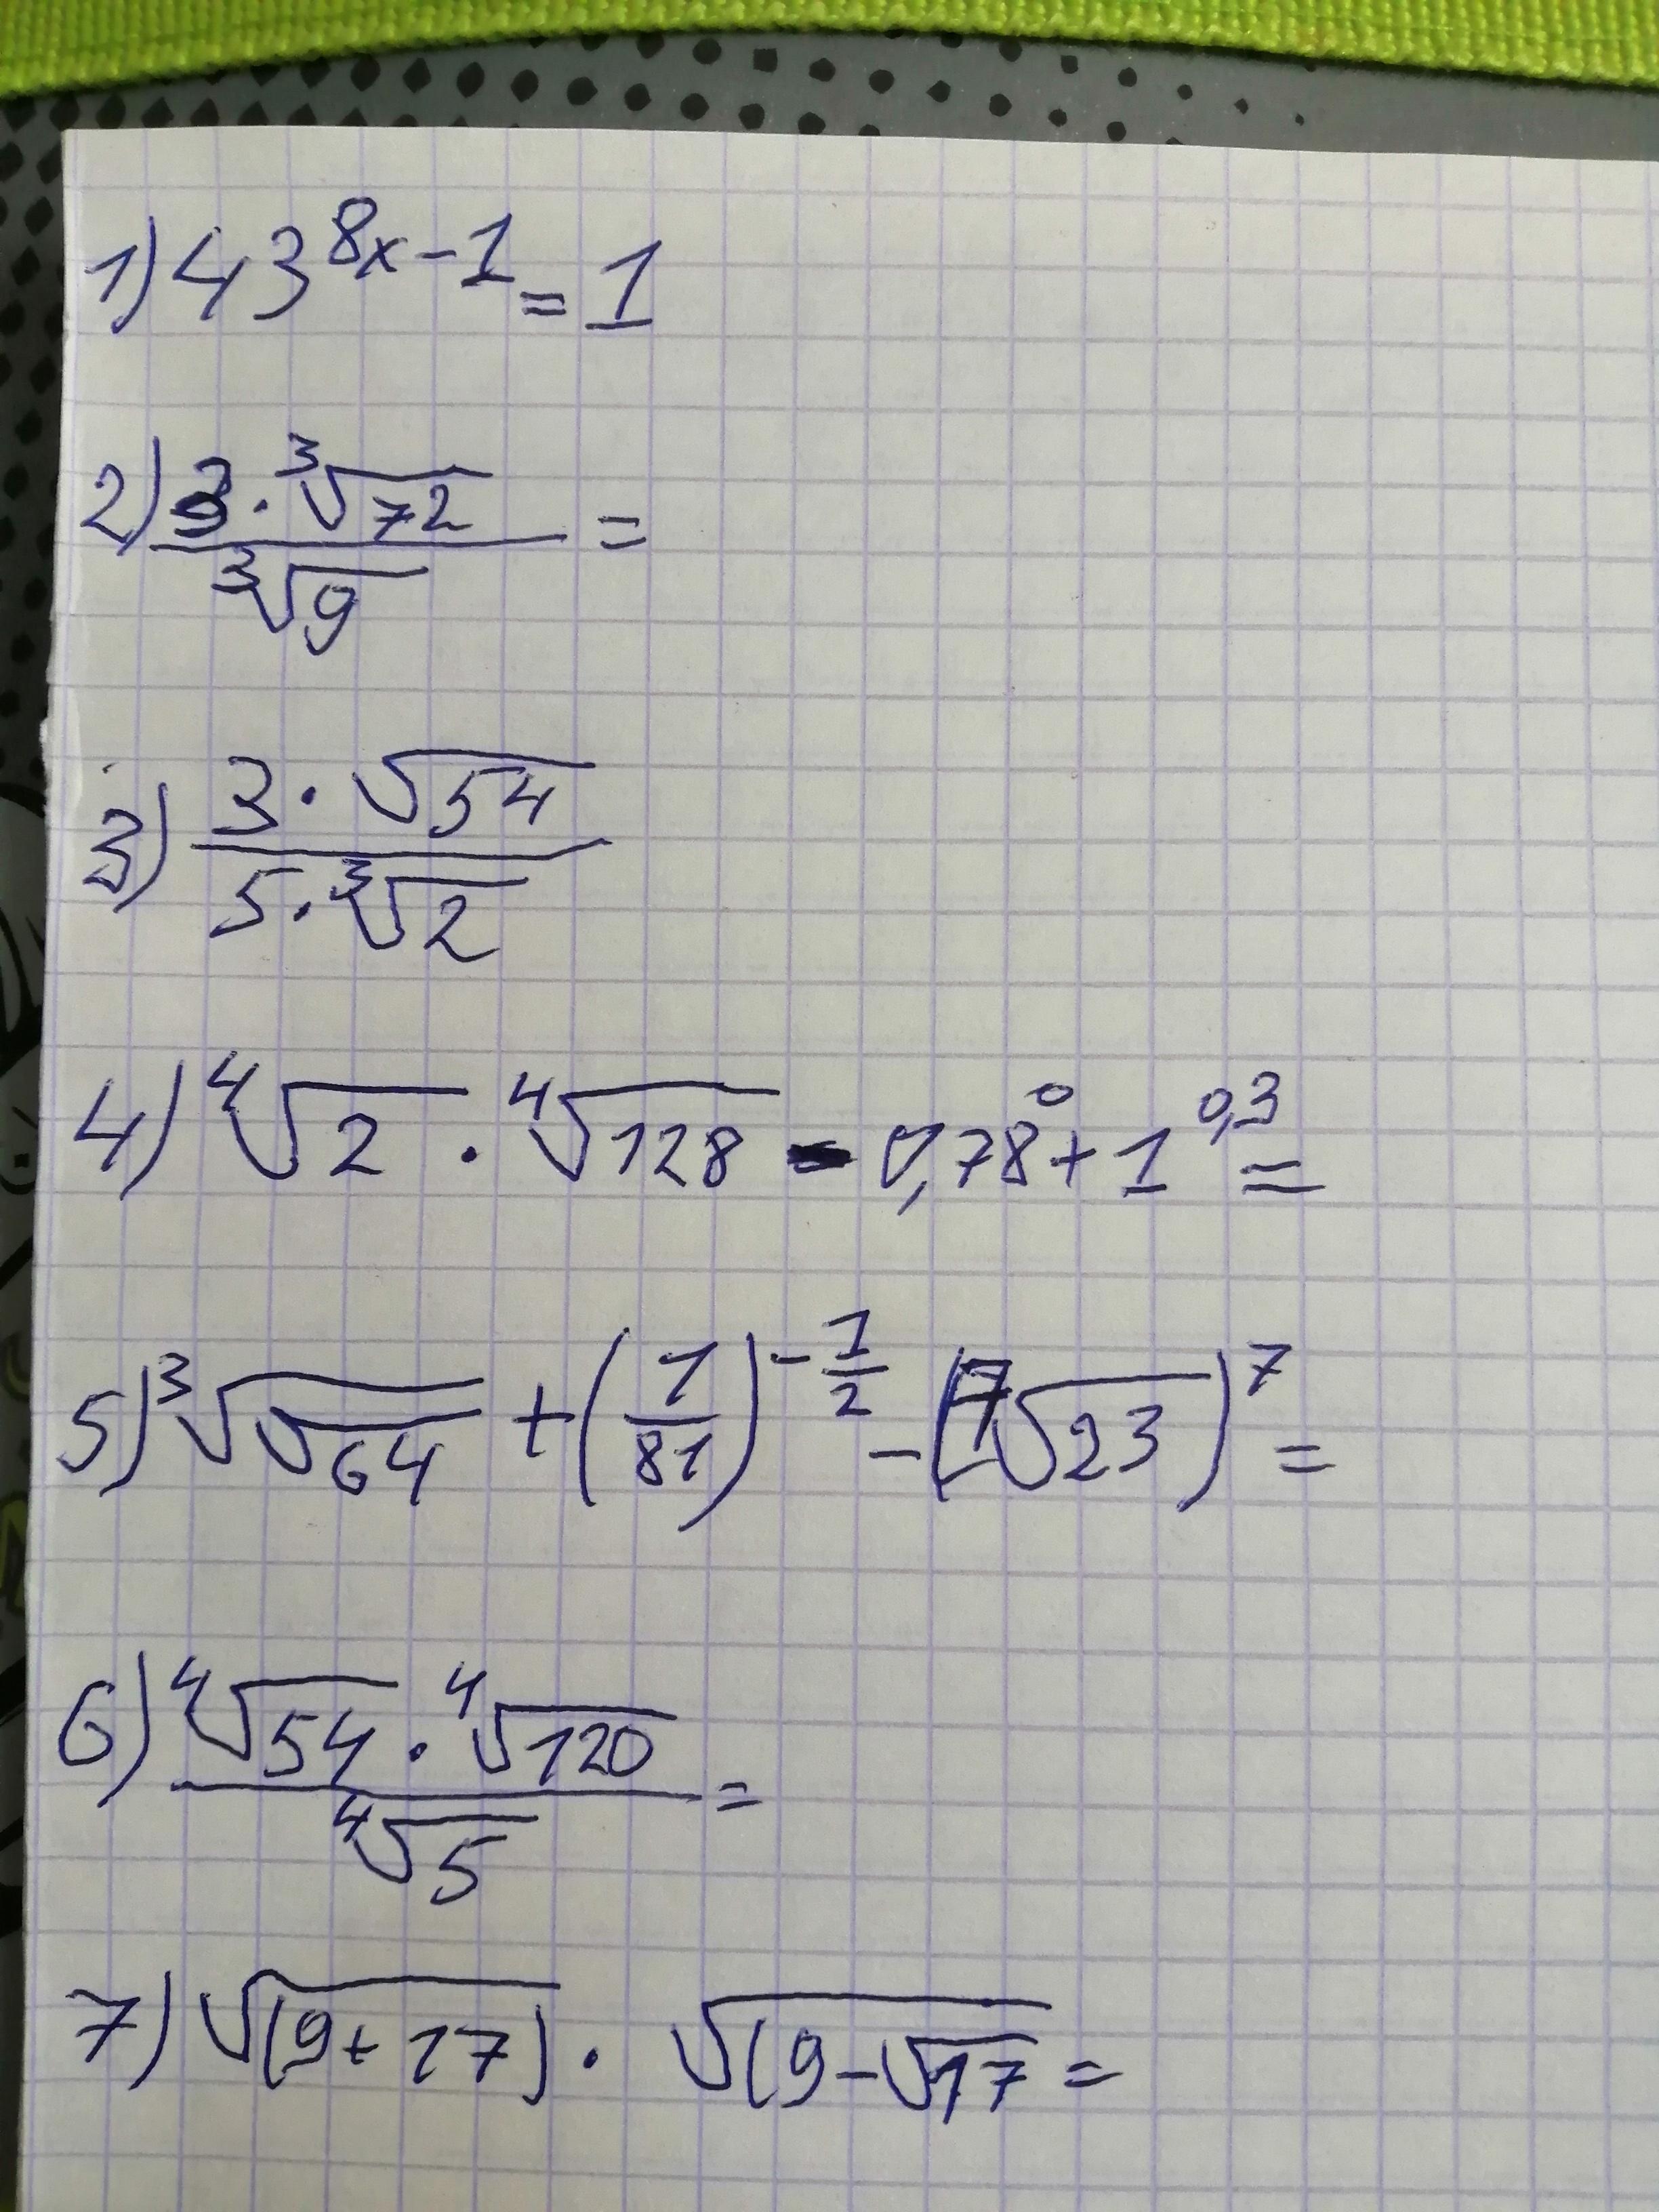 1) 43^(8x-1) = 1
2) (3 · ∛72) / ∛9 =
3) (3 · √54) / (5 · ∛2)
4) ∜2 · ∜128 - 0,78^0 + 1^(0,3) =
5) ∛√64 + (1/81)^(-1/2) - (⁷√23)^7 =
6) (∜54 · ∜120) / ∜5 =
7) √(9+17) · √(9-√17 =